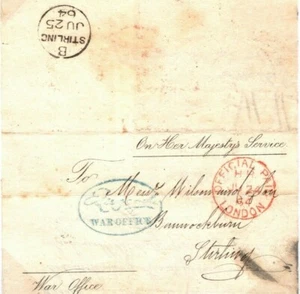 B
STIRLING
JU 25
64
On Her Majesty's Service
OFFICIAL PAID
LONDON
To
Mess Wilson and Son
WAR OFFICE
Bannockburn
Stirling
War Office